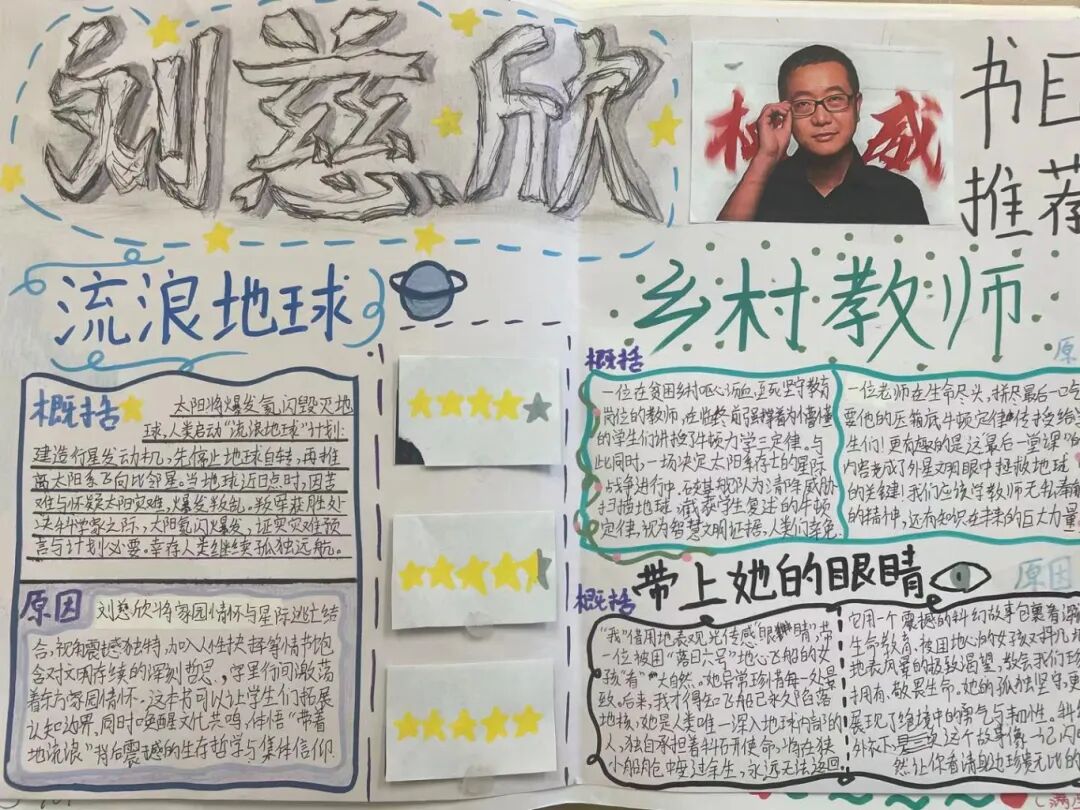 刘慈欣
权威
书目
推荐
流浪地球
概括
太阳将爆发氦闪毁灭地
球,人类启动“流浪地球”计划:
建造行星发动机,先停止地球自转,再推
离太阳系飞向比邻星。当地球近日点时,因苦
难与怀疑太阳灾难,爆发叛乱。叛军在胜处
决科学家之际,太阳氦闪爆发,证实灾难预
言与计划必要。幸存人类继续孤独远航。
原因
刘慈欣将家园情怀与星际逃亡结
合,视角震撼独特,加入人性抉择等情节饱
含对文明存续的深刻哲思,字里行间激荡
着东方家园情怀。这本书可以让学生们拓展
认知边界,同时唤醒文化共鸣,体悟“带着
地球流浪”背后震撼的生存哲学与集体信仰.
乡村教师
概括
一位在贫困乡村呕心沥血、至死坚守教育
岗位的教师,在临终前强撑着为懵懂
的学生们讲授了牛顿力学三定律。与
此同时,一场决定太阳系存亡的星际
战争进行中。碳基舰队为清除威胁
扫描地球,截获学生复述的牛顿
定律,视为智慧文明证据,人类们幸免.
原
一位老师在生命尽头,拼尽最后一口气
要他的压箱底牛顿定律传授给
生们!更有趣的是这最后一堂课
内容竟成了外星文明眼中拯救地球
的关键!我们应该学教师无私奉献
的精神,还有知识在丰丰的巨大力量
带上她的眼睛
概括
“我”借用地表观光传感“眼睛”,带
一位被困“落日六号”地心飞船的女
孩“看”大自然。她异常珍惜每一处景
致。后来,我才得知飞船已永久陷落
地核,她是人类唯一深入地球内部的
人,独自承担着科研使命,将在狭
小船舱中度过余生,永远无法返回.
原因
它用一个震撼的科幻故事包裹着
生命教育,被困地心的女孩对
地表风景的极致渴望,教会我们珍
拥有、敬畏生命。她的孤独坚守,更
展现了绝境中的勇气与韧性。科
外衣下,这个故事像一记
然让你看清身边珍贵无比的